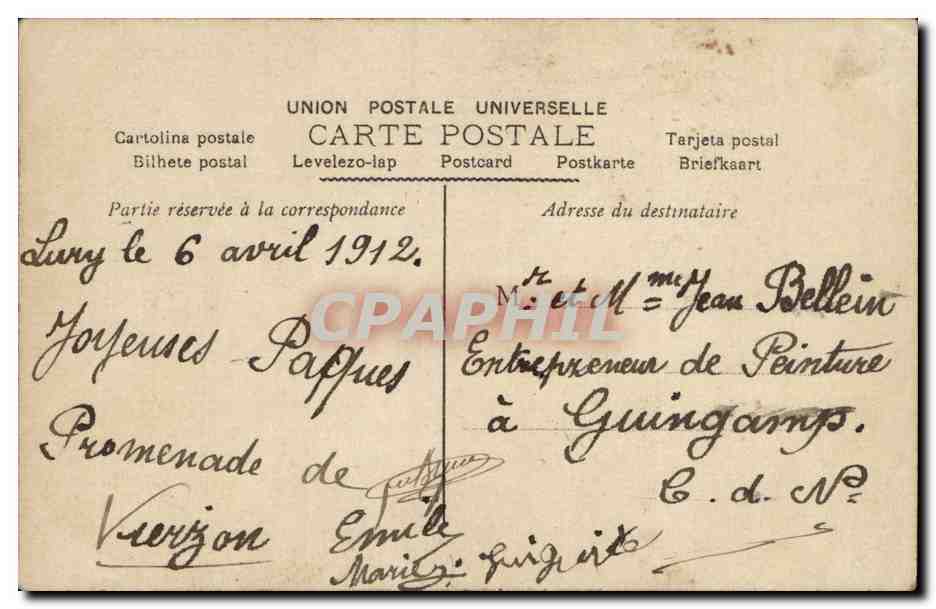 UNION POSTALE UNIVERSELLE
CARTE POSTALE
Cartolina postale
Tarjeta postal
Bilhete postal
Levelezo-lap
Postcard
Postkarte
Briefkaart
Partie réservée à la correspondance
Lury le 6 avril 1912.
Joyeuses Paques
Promenade de
Vierzon
Emile
Marie
Adresse du destinataire
Mr. et Mme Jean Bellein
Entrepreneur de Peinture
à Guingamp.
C. d. Nd
CPAPHIL